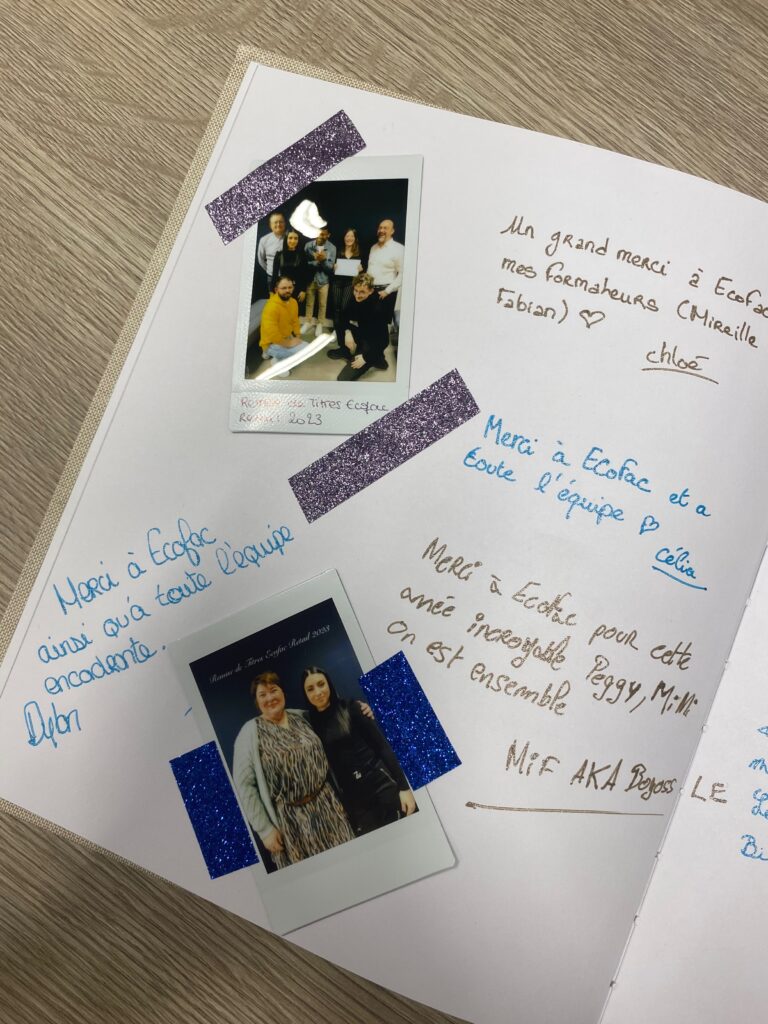 Un grand merci à Ecofac
mes formateurs (Mireille
Fabian) ♡
chloé
Remise de Titres Ecofac
2023
Merci à Ecofac et a
toute l'équipe ♡
célia
Merci à Ecofac
ainsi qu'à toute l'équipe
encadrante.
Dylan
Merci à Ecofac pour cette
année incroyable Peggy, MiMi
On est ensemble
MiF AKA Bogoss LE
Remise de Titres Ecofac Retail 2023